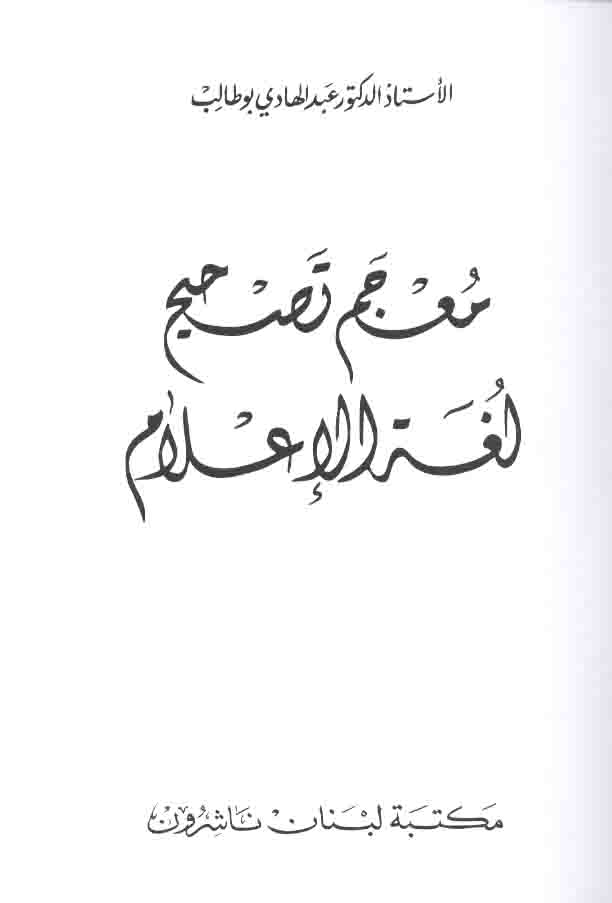 الأستاذ الدكتور عبد الهادي بوطالب
مُعْجَم تَصْحيح
لُغَة الإعْلام
مَكتَبة لبْنَان نَاشِرُونْ